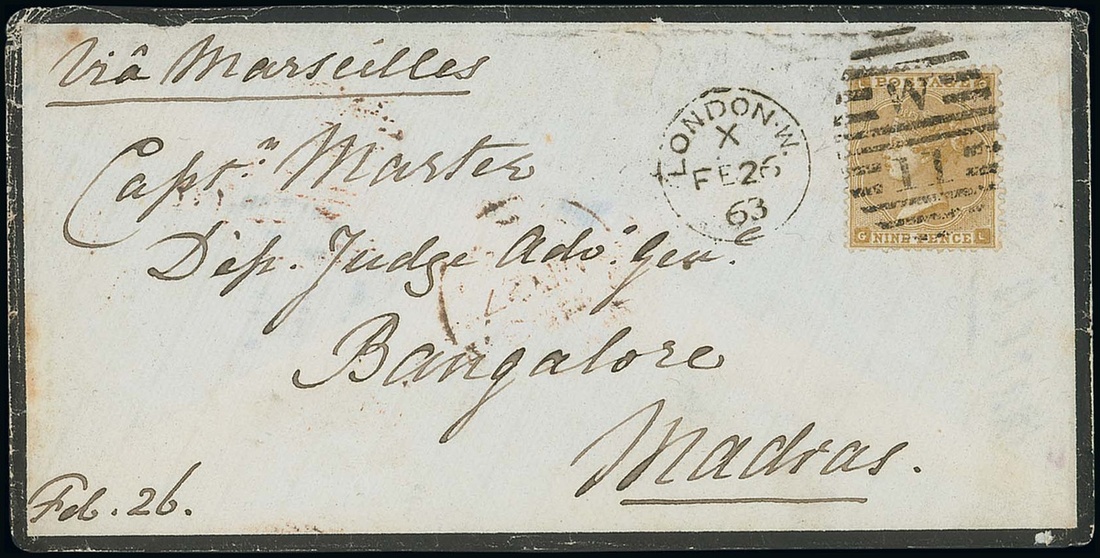 Viâ Marseilles
Captn. Marter
Dep. Judge Advo. Genl.
Bangalore
Madras.
Feb. 26.
LONDON·W.
X
FE 26
63
POSTAGE
W
11
G NINE PENCE L